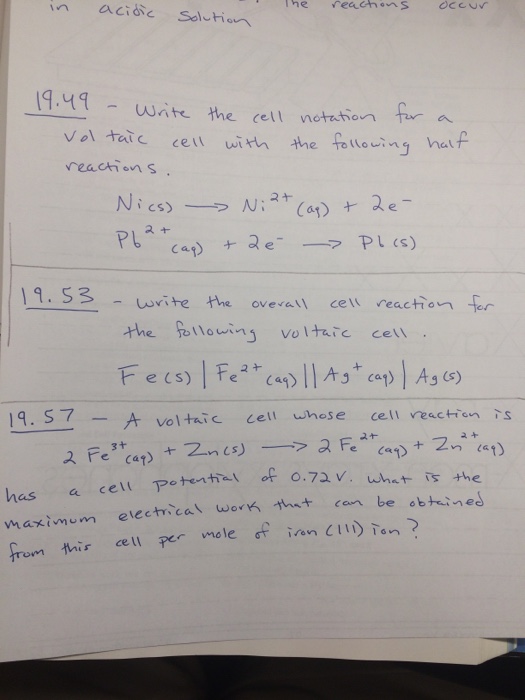 in acidic solution The reactions occur
19.49 - Write the cell notation for a
voltaic cell with the following half
reactions.
Ni(s) ⟶ Ni²⁺(aq) + 2e⁻
Pb²⁺(aq) + 2e⁻ ⟶ Pb(s)
19.53 - Write the overall cell reaction for
the following voltaic cell.
Fe(s) | Fe²⁺(aq) || Ag⁺(aq) | Ag(s)
19.57 - A voltaic cell whose cell reaction is
2 Fe³⁺(aq) + Zn(s) ⟶ 2 Fe²⁺(aq) + Zn²⁺(aq)
has a cell potential of 0.72 V. What is the
maximum electrical work that can be obtained
from this cell per mole of iron (III) ion?